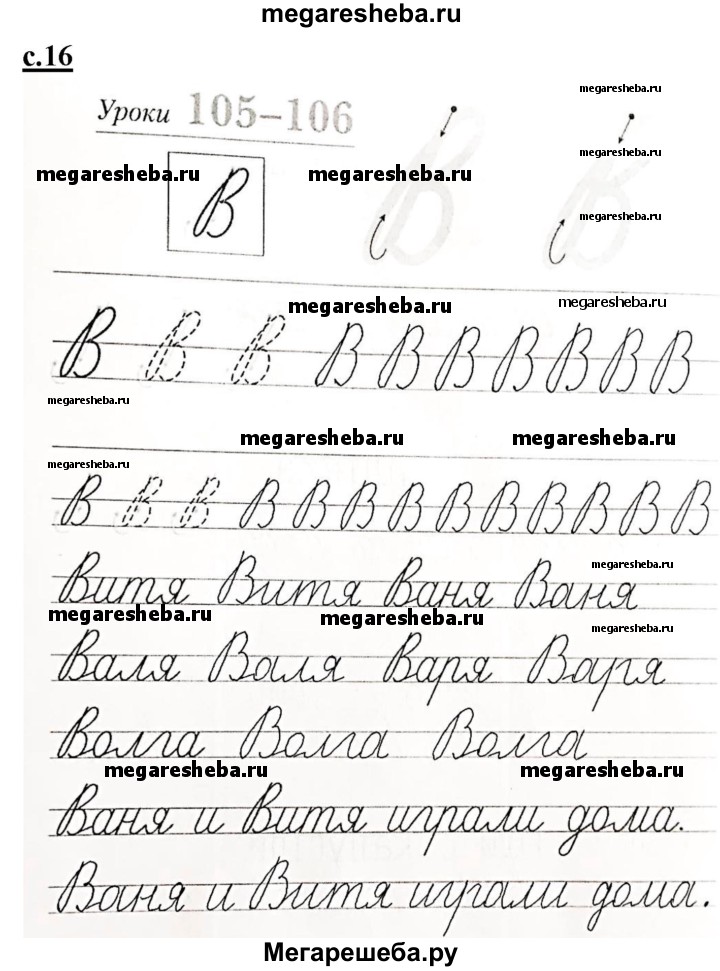 megaresheba.ru
с.16
Уроки 105–106
megaresheba.ru
megaresheba.ru
megaresheba.ru megaresheba.ru
В
megaresheba.ru
megaresheba.ru megaresheba.ru
В В В В В В В В В В
megaresheba.ru
megaresheba.ru megaresheba.ru
megaresheba.ru
В В В В В В В В В В В В В
megaresheba.ru
Витя Витя Ваня Ваня
megaresheba.ru megaresheba.ru
megaresheba.ru
Валя Валя Варя Варя
Волга Волга Волга
megaresheba.ru megaresheba.ru
Ваня и Витя играли дома.
Ваня и Витя играли дома.
Мегарешеба.ру